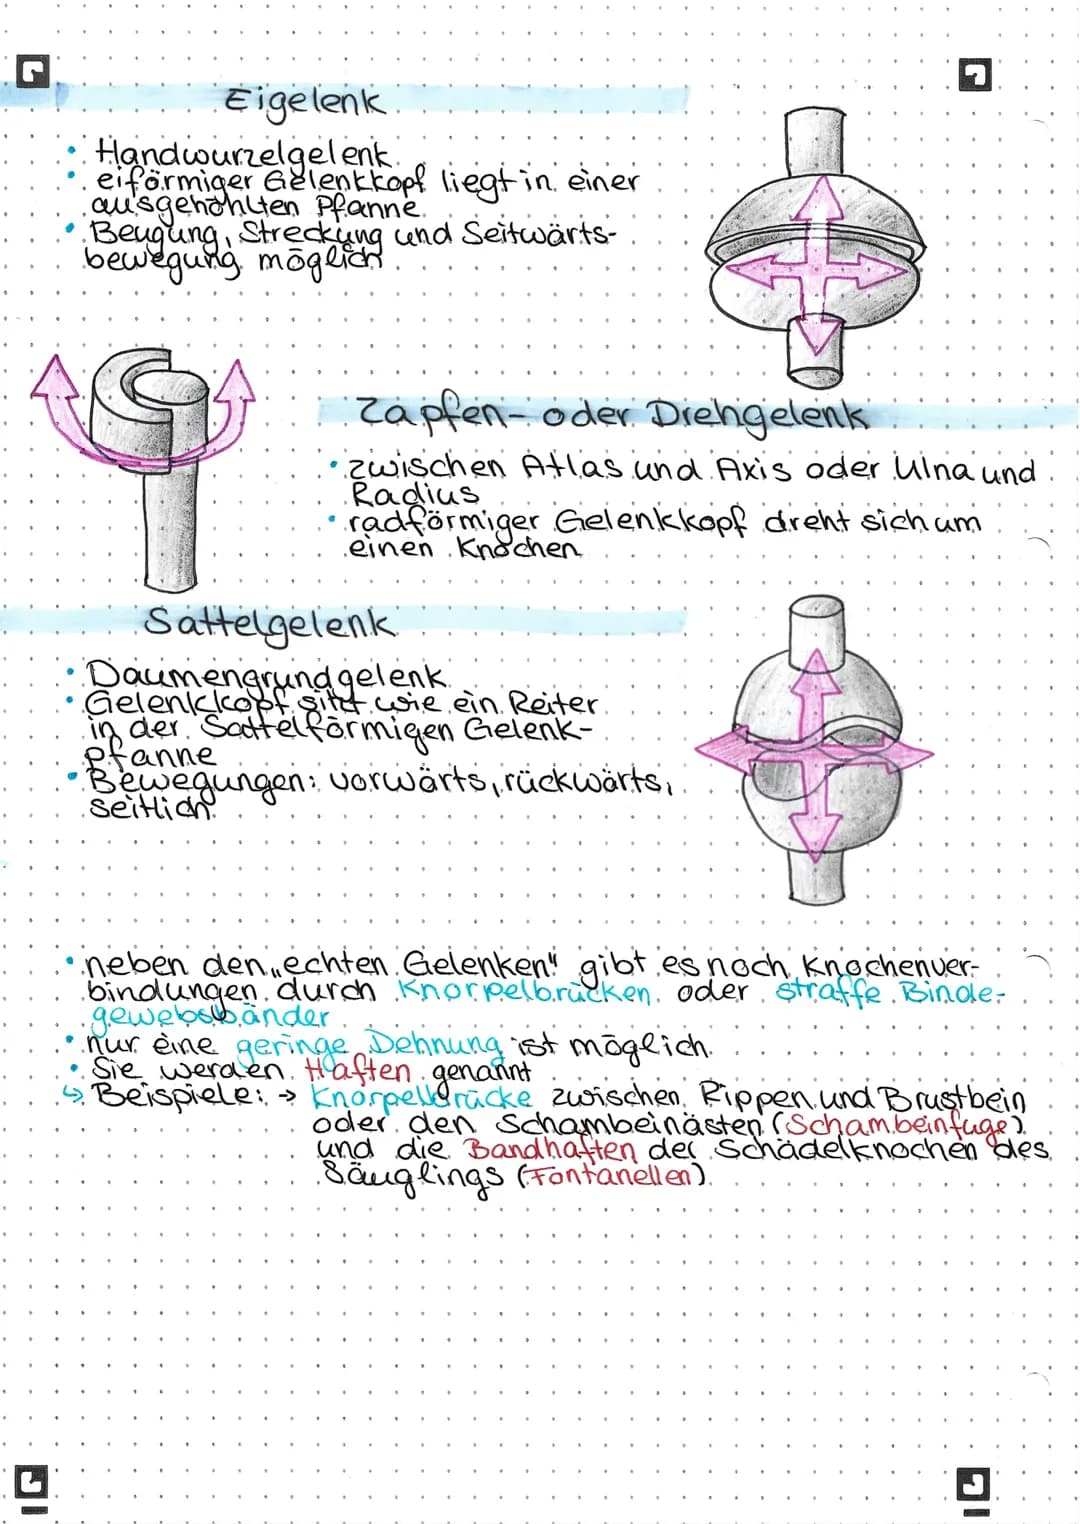 Eigelenk
• Handwurzelgelenk
• eiförmiger Gelenkkopf liegt in einer
ausgehöhlten Pfanne
• Beugung, Streckung und Seitwärts-
bewegung möglich
Zapfen- oder Drehgelenk
• zwischen Atlas und Axis oder Ulna und
Radius
• radförmiger Gelenkkopf dreht sich um
einen Knochen
Sattelgelenk
• Daumengrundgelenk
• Gelenkkopf sitzt wie ein Reiter
in der Sattelförmigen Gelenk-
pfanne
• Bewegungen: vorwärts, rückwärts,
seitlich
• neben den „echten Gelenken" gibt es noch Knochenver-
bindungen durch Knorpelbrücken oder straffe Binde-
gewebsbänder
• nur eine geringe Dehnung ist möglich.
• Sie werden Haften genannt
↳ Beispiele: → Knorpelbrücke zwischen Rippen und Brustbein
oder den Schambeinästen (Schambeinfuge)
und die Bandhaften der Schädelknochen des
Säuglings (Fontanellen)